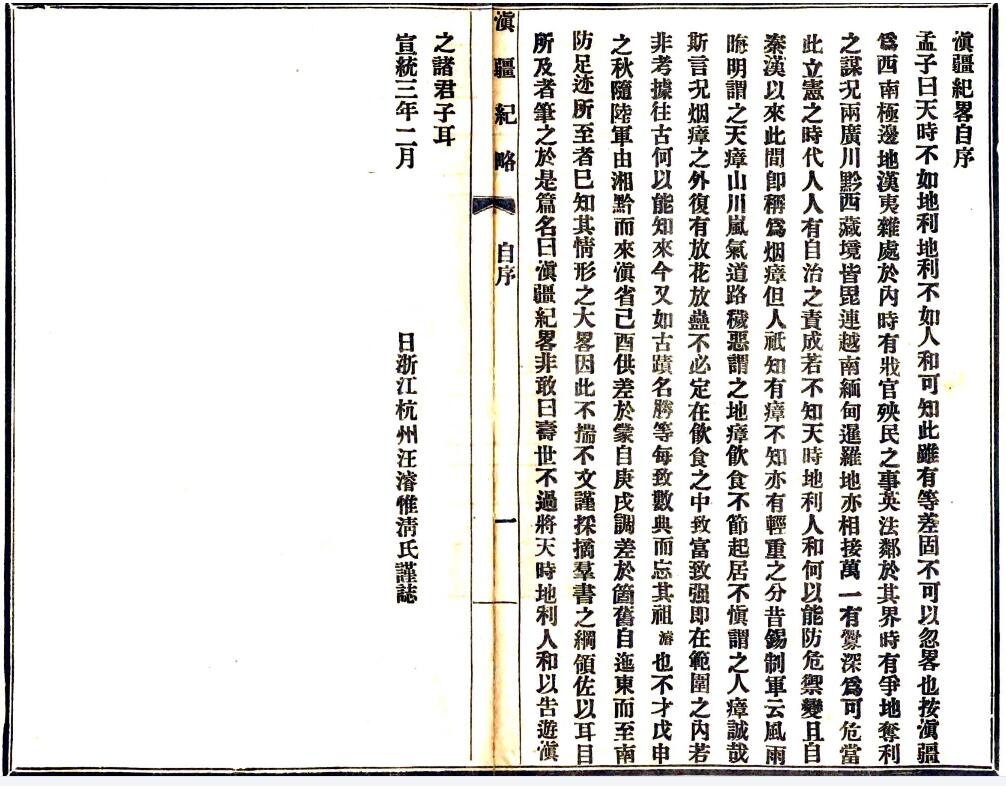 滇疆紀畧自序
孟子曰天時不如地利地利不如人和可知此雖有等差固不可以忽畧也按滇疆
爲西南極邊地漢夷雜處於內時有戕官殃民之事英法鄰於其界時有爭地奪利
之謀況兩廣川黔西藏境皆毘連越南緬甸暹羅地亦相接萬一有釁深爲可危當
此立憲之時代人人有自治之責成若不知天時地利人和何以能防危禦變且自
秦漢以來此間卽稱爲烟瘴但人祇知有瘴不知亦有輕重之分昔錫制軍云風雨
晦明謂之天瘴山川嵐氣道路穢惡謂之地瘴飲食不節起居不愼謂之人瘴誠哉
斯言況烟瘴之外復有放花放蠱不必定在飲食之中致富致强卽在範圍之內若
非考據往古何以能知來今又如古蹟名勝等每致數典而忘其祖濬也不才戊申
之秋隨陸軍由湘黔而來滇省己酉供差於蒙自庚戌調差於箇舊自迤東而至南
防足迹所至者已知其情形之大畧因此不揣不文謹採摘羣書之綱領佐以耳目
所及者筆之於是篇名曰滇疆紀畧非敢曰壽世不過將天時地利人和以告遊滇
滇疆紀略
自序
一
之諸君子耳
宣統三年二月 日浙江杭州汪濬惟淸氏謹誌